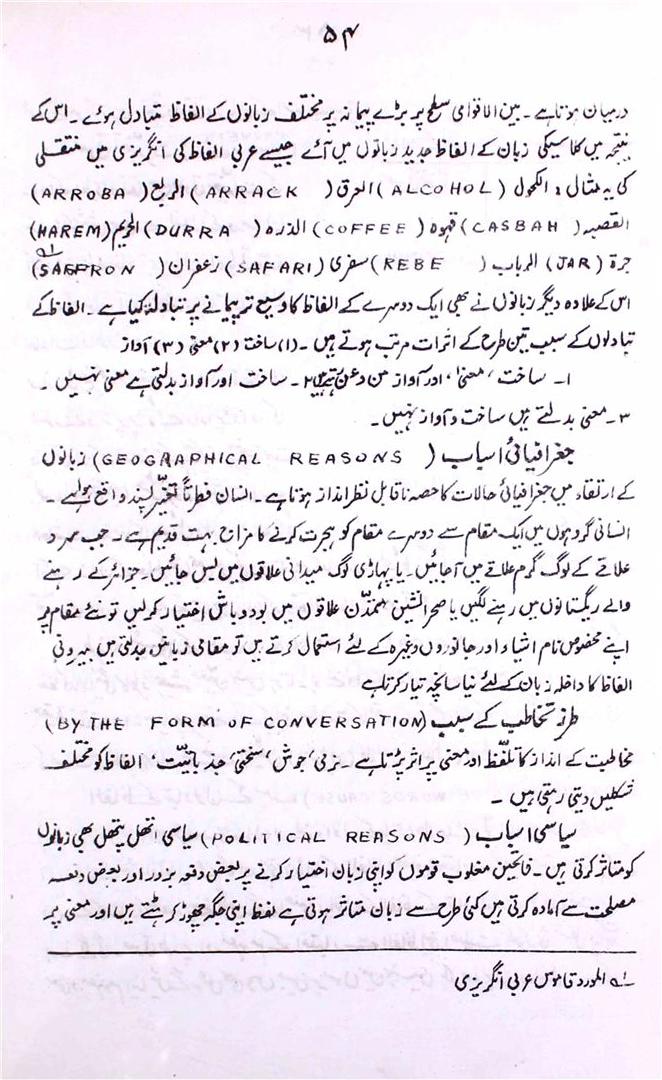 ۵۴
درمیان ہوتا ہے ۔ بین الاقوامی سطح پر بڑے پیمانہ پر مختلف زبانوں کے الفاظ متبادل ہوئے ۔ اس کے
نتیجہ میں کلاسیکی زبان کے الفاظ جدید زبانوں میں آئے جیسے عربی الفاظ کی انگریزی میں منتقلی
کی یہ مثال : الکحول (ALCOHOL) العرق (ARRACK) الربع (ARROBA)
القصبہ (CASBAH) قہوہ (COFFEE) الذرہ (DURRA) الحریم (HAREM)
جرة (JAR) الرباب (REBE) سفری (SAFARI) زعفران (SAFFRON) ؎۱
اس کے علاوہ دیگر زبانوں نے بھی ایک دوسرے کے الفاظ کا وسیع تر پیمانے پر تبادلہ کیا ہے ۔ الفاظ کے
تبادلوں کے سبب تین طرح کے اثرات مرتب ہوتے ہیں ۔ (۱) ساخت (۲) معنی (۳) آواز
۱ ۔ ساخت ، معنیٰ ، اور آواز من و عن رہتے ہیں ۲ ۔ ساخت اور آواز بدلتی ہے معنی نہیں ۔
۳ ۔ معنی بدلتے ہیں ساخت و آواز نہیں ۔
جغرافیائی اسباب (GEOGRAPHICAL REASONS) زبانوں
کے ارتقاء میں جغرافیائی حالات کا حصہ ناقابل نظر انداز ہوتا ہے ۔ انسان فطرتاً تغیّر پسند واقع ہوا ہے ۔
انسانی گروہوں میں ایک مقام سے دوسرے مقام کو ہجرت کرنے کا مزاج بہت قدیم ہے ۔ جب سرد
علاقے کے لوگ گرم علاقے میں آجائیں ۔ یا پہاڑی لوگ میدانی علاقوں میں بس جائیں ۔ جزائر کے رہنے
والے ریگستانوں میں رہنے لگیں یا صحرا نشین متمدّن علاقوں میں بود و باش اختیار کرلیں تو نئے مقام پر
اپنے مخصوص نام اشیاء اور جانوروں وغیرہ کے لئے استعمال کرتے ہیں تو مقامی زبانیں بدلتی ہیں بیرونی
الفاظ کا داخلہ زبان کے لئے نیا سانچہ تیار کرتا ہے
طرز تخاطب کے سبب (BY THE FORM OF CONVERSATION)
مخاطبت کے انداز کا تلفّظ اور معنی پر اثر پڑتا ہے ۔ نرمی ، جوش ، سختی ، جذباتیّت ، الفاظ کو مختلف
شکلیں دیتی رہتی ہیں ۔
سیاسی اسباب (POLITICAL REASONS) سیاسی اتھل پتھل بھی زبانوں
کو متاثر کرتی ہیں ۔ فاتحین مغلوب قوموں کو اپنی زبان اختیار کرنے پر بعض دفعہ بزور اور بعض دفعہ
مصلحت سے آمادہ کرتی ہیں کئی طرح سے زبان متاثر ہوتی ہے لفظ اپنی جگہ چھوڑ کر ہٹتے ہیں اور معنی پر
؎۱ المورد قاموس عربی انگریزی